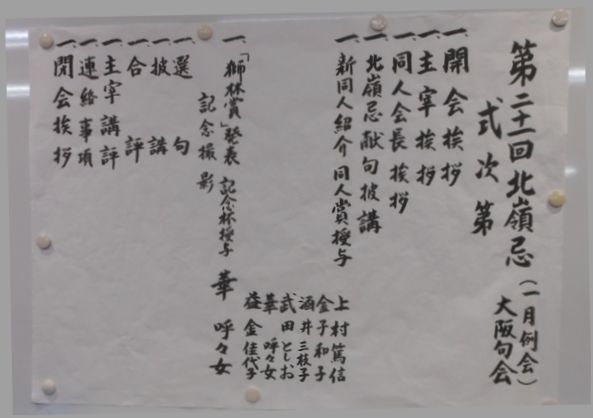 第二十一回北嶺忌(一月例会)
大阪句会
式次第
一、開会挨拶
一、主宰挨拶
一、同人会長挨拶
一、北嶺忌献句披講
一、新同人紹介 同人賞授与
上村篤信
金子和子
酒井三枝子
武田としお
華 呼々女
益金佳代子
一、「獅林賞」発表 記念杯授与 華 呼々女
記念撮影
一、選句
一、披講
一、合評
一、主宰講評
一、連絡事項
一、閉会挨拶